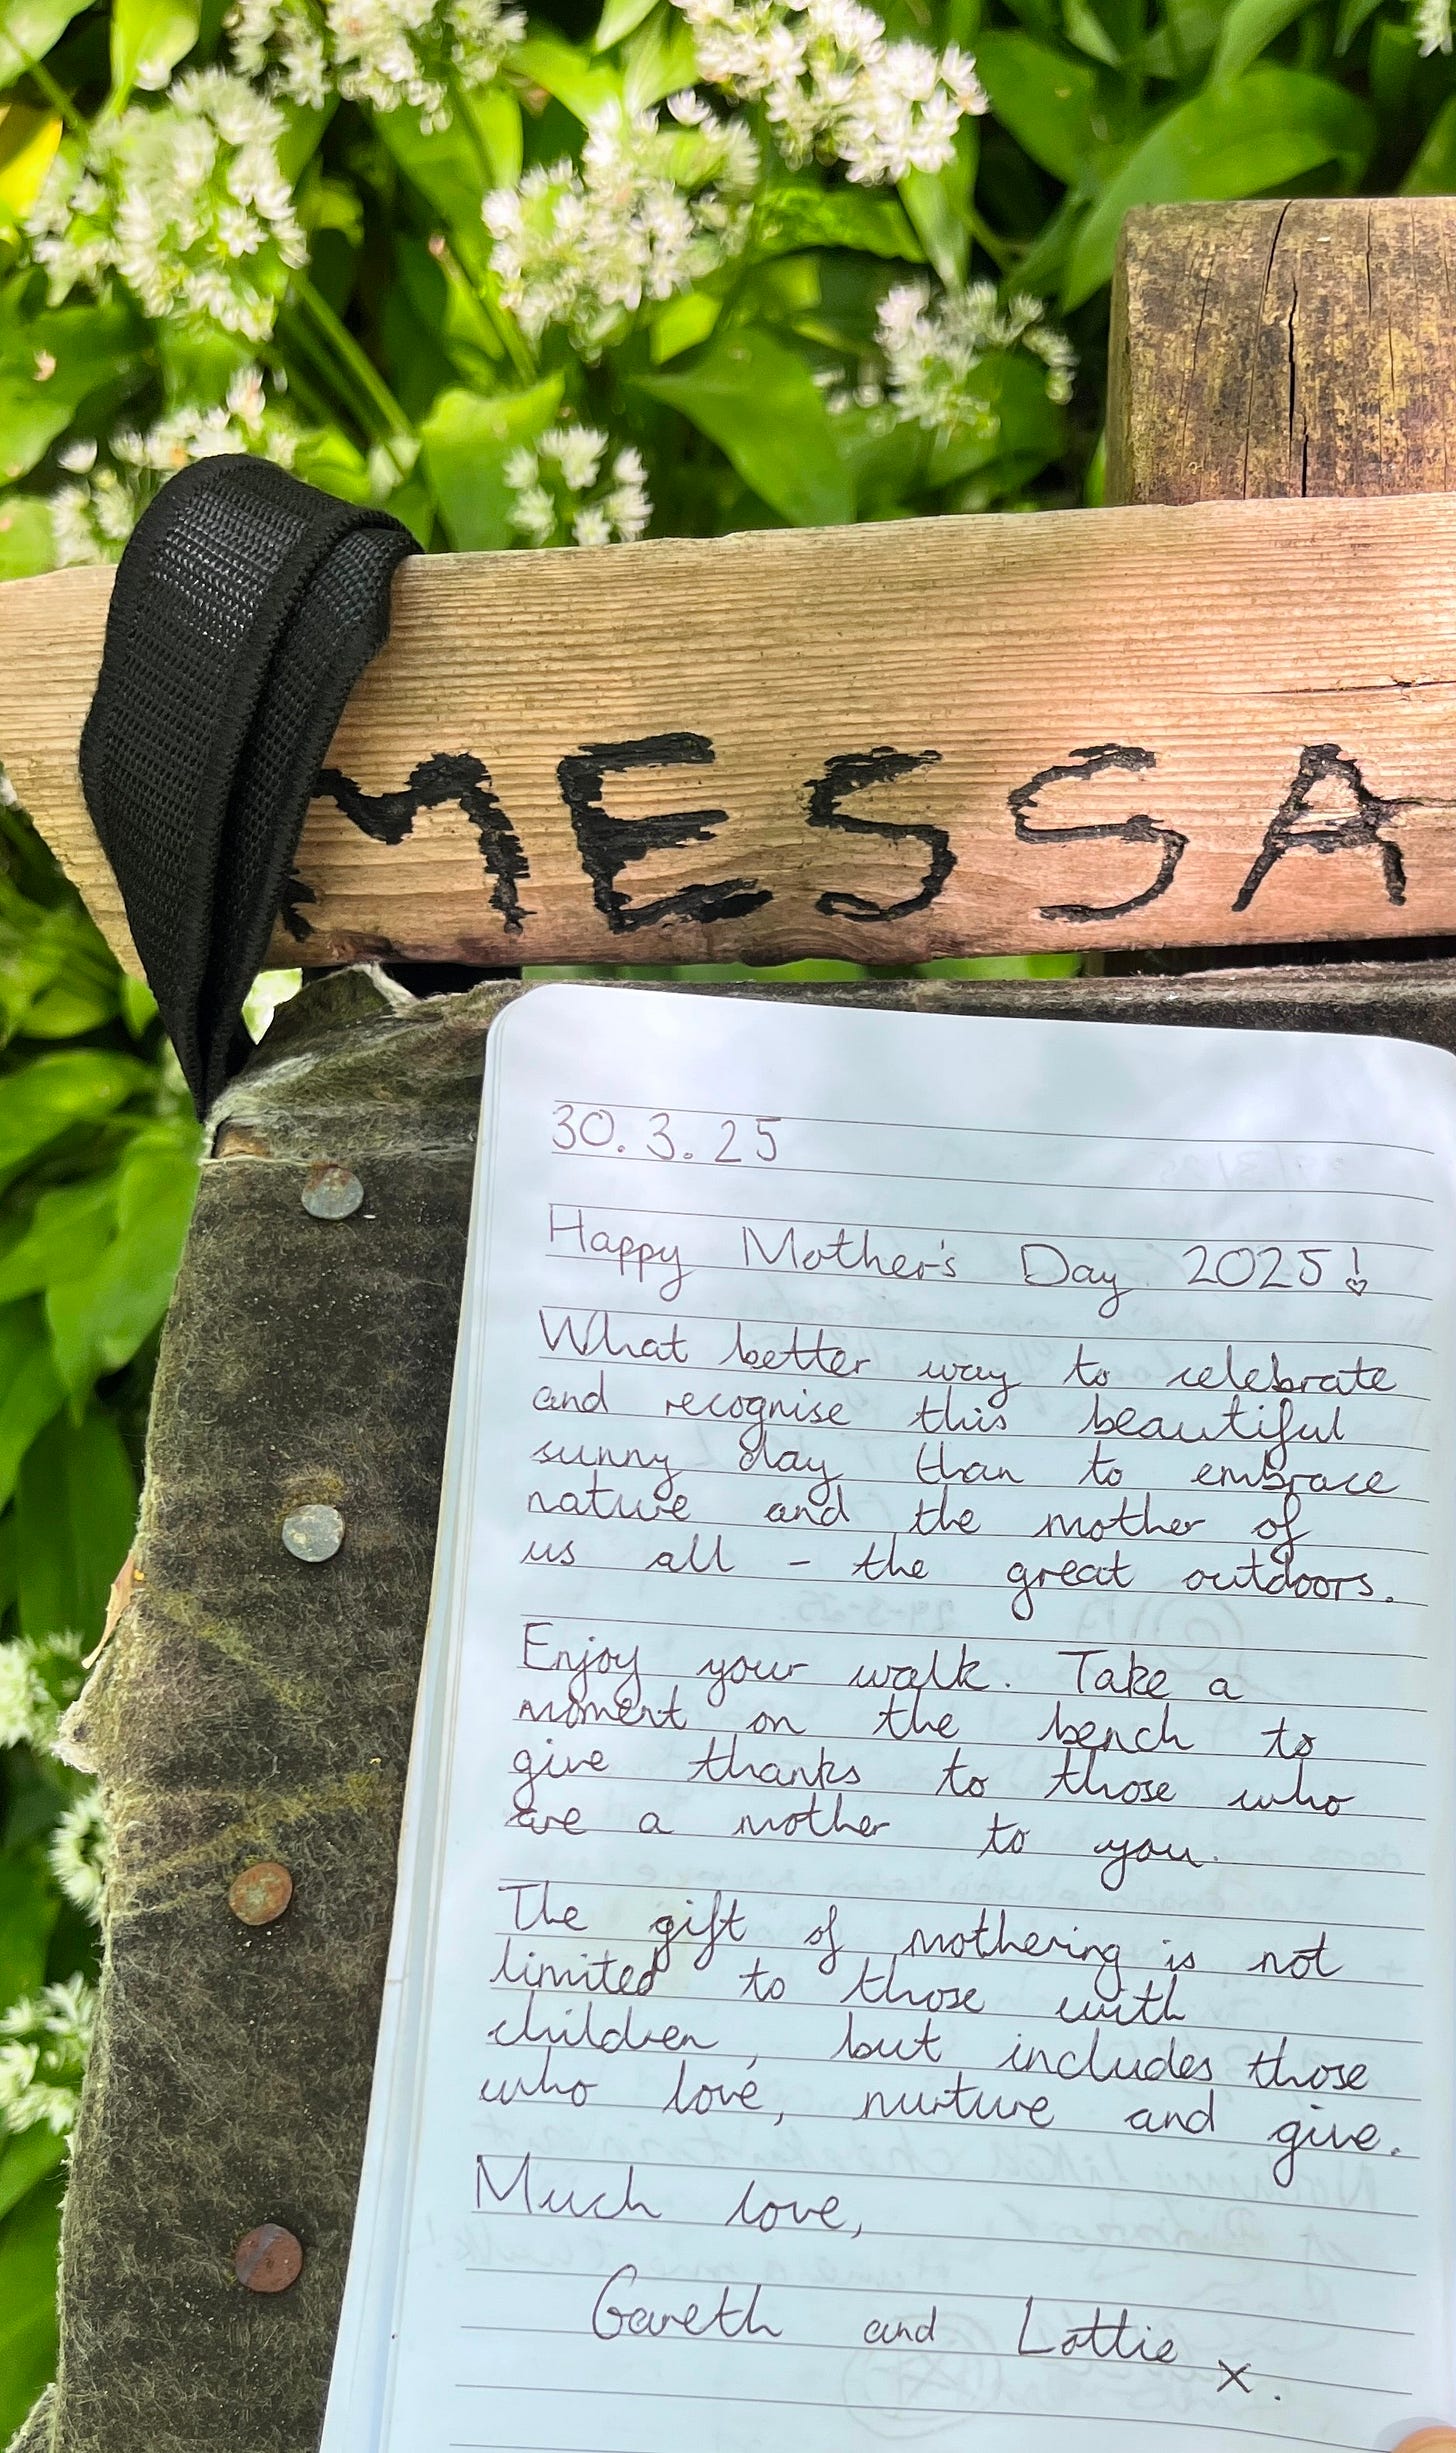 MESSA
30.3.25
Happy Mother's Day 2025!
What better way to celebrate
and recognise this beautiful
sunny day than to embrace
nature and the mother of
us all - the great outdoors.
Enjoy your walk. Take a
moment on the bench to
give thanks to those who
are a mother to you.
The gift of mothering is not
limited to those with
children, but includes those
who love, nurture and give.
Much love,
Gareth and Lottie x.